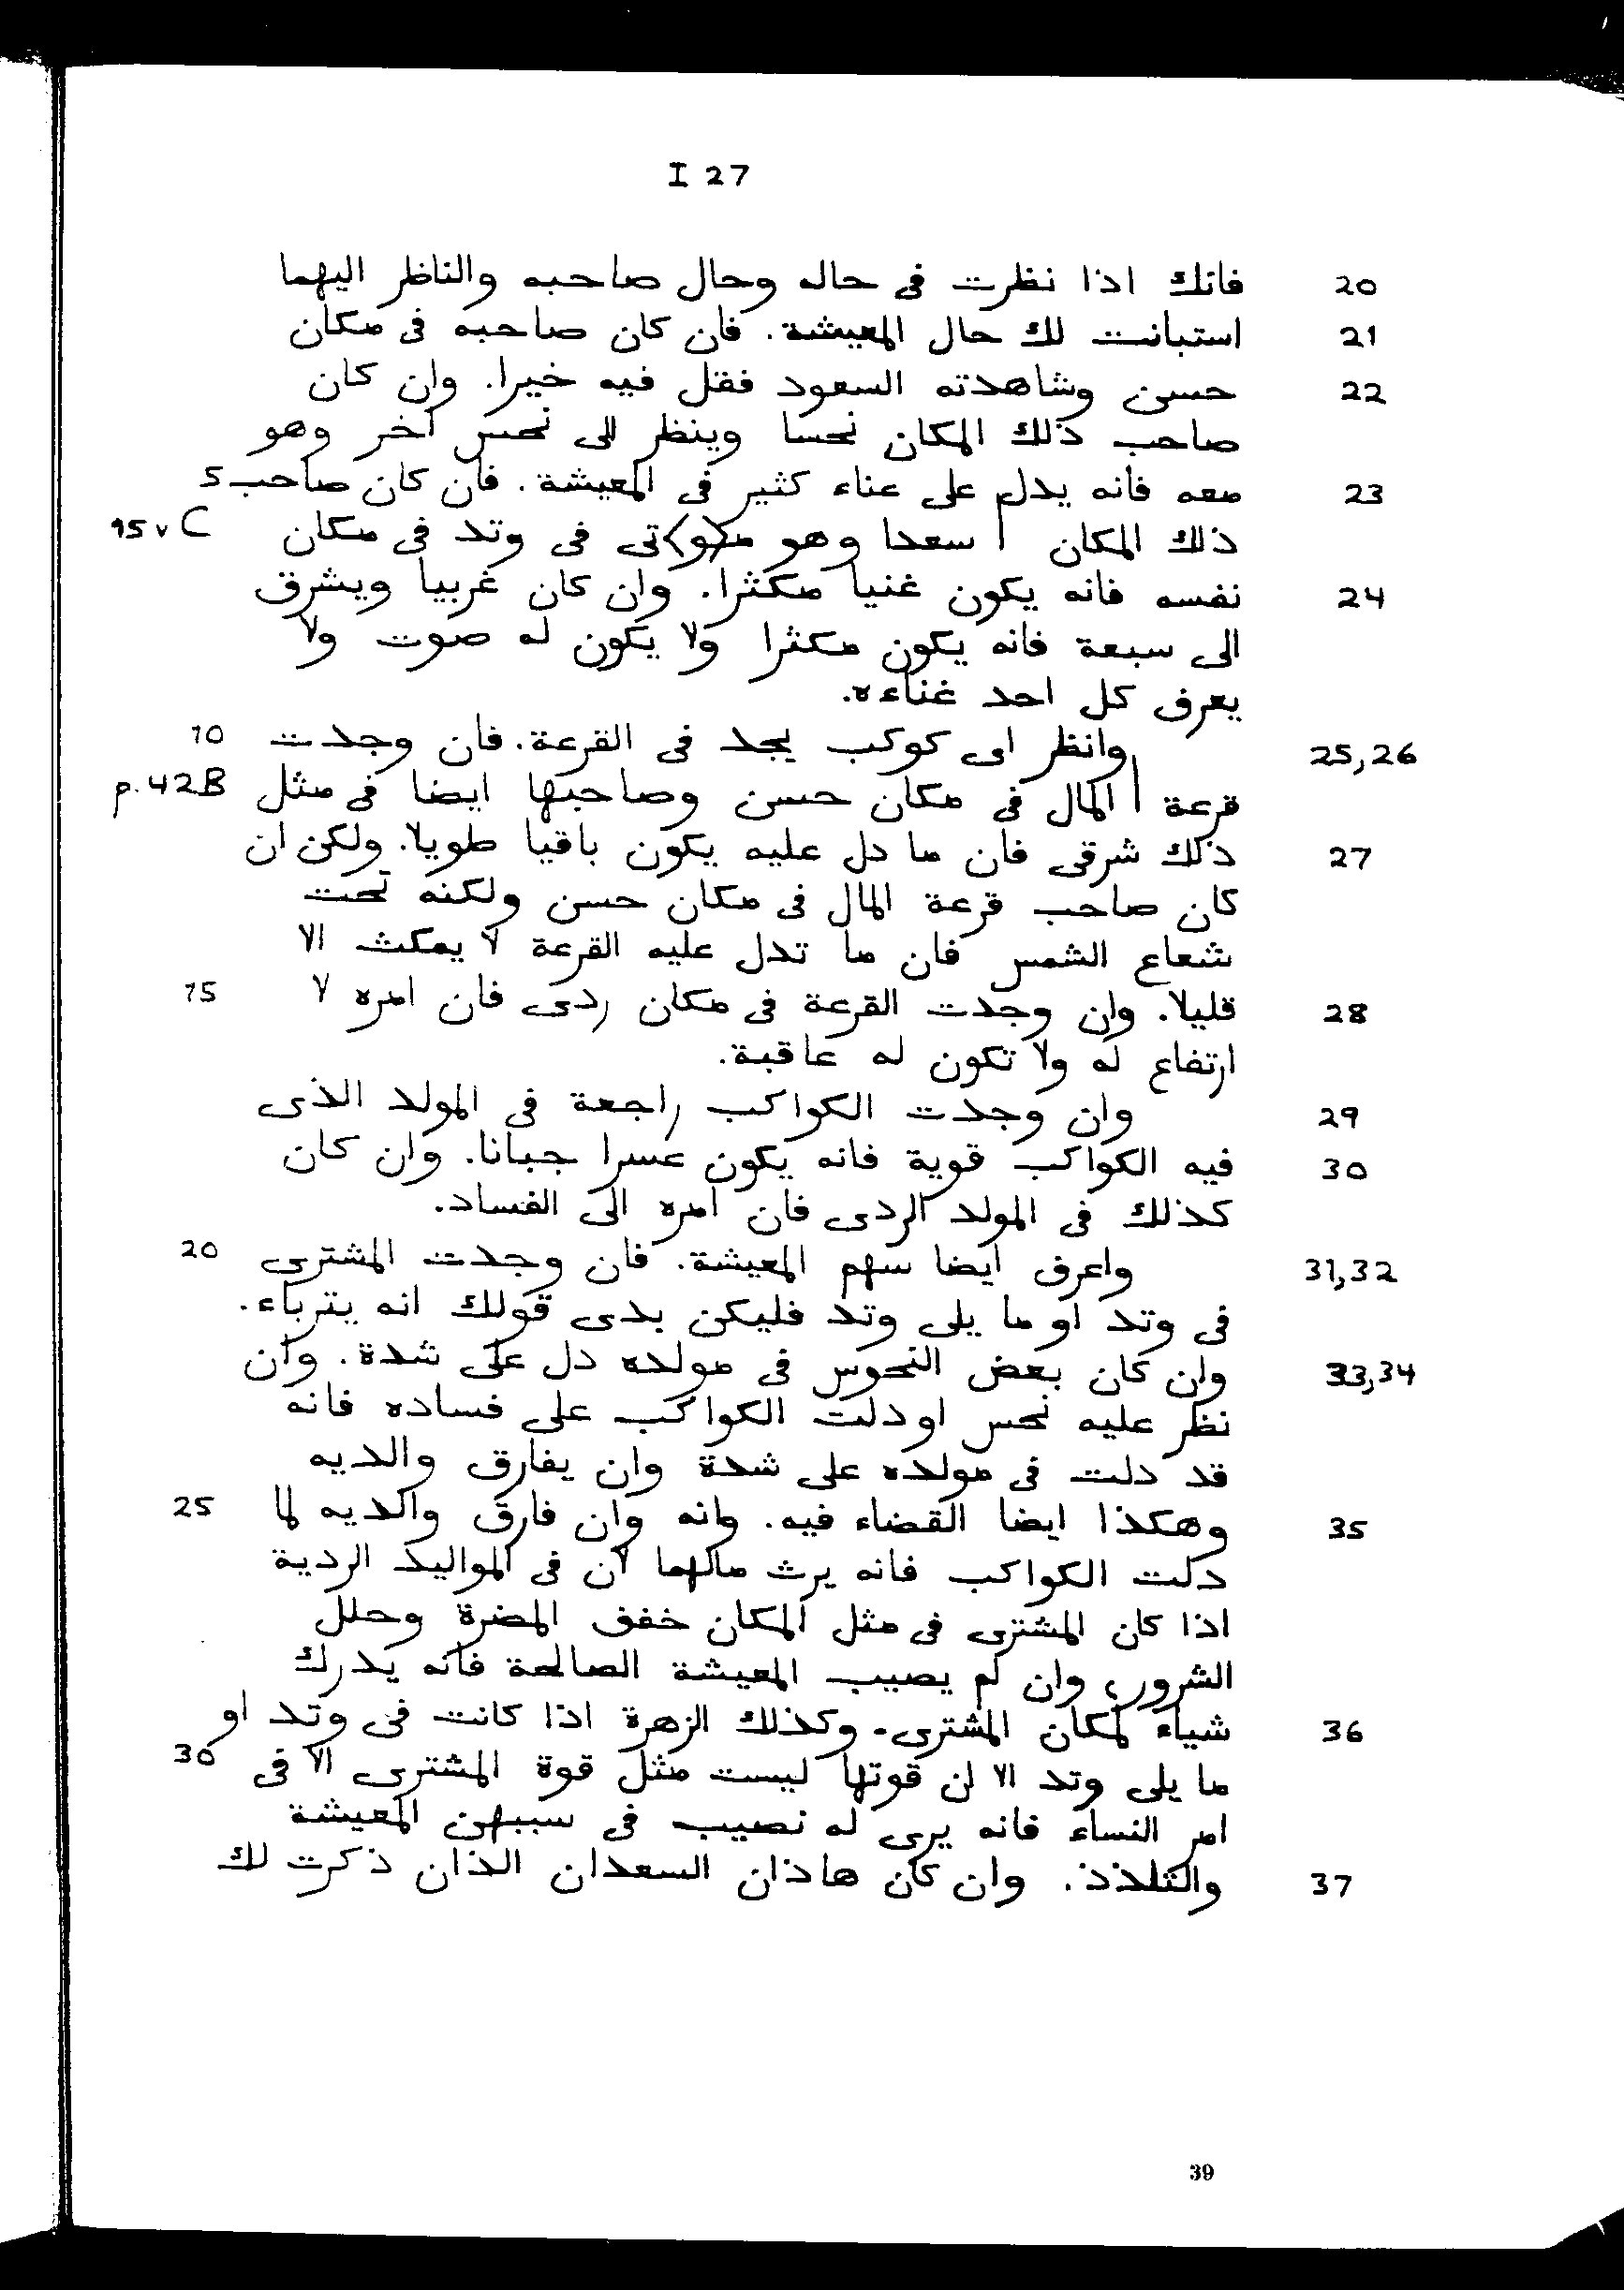 I 27
20 فانك اذا نظرت فى حاله وحال صاحبه والناظر اليهما
21 استبانت لك حال المعيشة. فان كان صاحبه فى مكان
22 حسن وشاهدته السعود فقل فيه خيرا. وان كان
صاحب ذلك المكان نحسا وينظر الى نحس آخر وهو
23 معه فانه يدل على عناء كثير فى المعيشة. فان كان صاحب 5
ذلك المكان | سعدا وهو م<و>تى فى وتد فى مكان 15v C
24 نفسه فانه يكون غنيا مكثرا. وان كان غربيا ويشرق
الى سبعة فانه يكون مكثرا ولا يكون له صوت ولا
يعرف كل احد غناءه.
25,26 وانظر اى كوكب يجد فى القرعة. فان وجدت 10
قرعة | المال فى مكان حسن وصاحبها ايضا فى مثل p. 42B
27 ذلك شرقى فان ما دل عليه يكون باقيا طويلا. ولكن ان
كان صاحب قرعة المال فى مكان حسن ولكنه تحت
شعاع الشمس فان ما تدل عليه القرعة لا يمكث الا
28 قليلا. وان وجدت القرعة فى مكان ردى فان امره لا 15
ارتفاع له ولا تكون له عاقبة.
29 وان وجدت الكواكب راجعة فى المولد الذى
30 فيه الكواكب قوية فانه يكون عسرا جبانا. وان كان
كذلك فى المولد الردى فان امره الى الفساد.
31,32 واعرف ايضا سهم المعيشة. فان وجدت المشترى 20
فى وتد او ما يلى وتد فليكن بدى قولك انه يترباء.
33,34 وان كان بعض النحوس فى مولده دل على شدة. وان
نظر عليه نحس او دلت الكواكب على فساده فانه
قد دلت فى مولده على شدة وان يفارق والديه
35 وهكذا ايضا القضاء فيه. وانه وان فارق والديه لما 25
دلت الكواكب فانه يرث مالهما لان فى المواليد الردية
اذا كان المشترى فى مثل المكان خفف المضرة وحلل
الشرور، وان لم يصيب المعيشة الصالحة فانه يدرك
36 شياء لمكان المشترى. وكذلك الزهرة اذا كانت فى وتد او
ما يلى وتد الا ان قوتها ليست مثل قوة المشترى الا فى 30
امر النساء فانه يرى له نصيب فى سببهن المعيشة
37 والتلذذ. وان كان هاذان السعدان الذان ذكرت لك
39